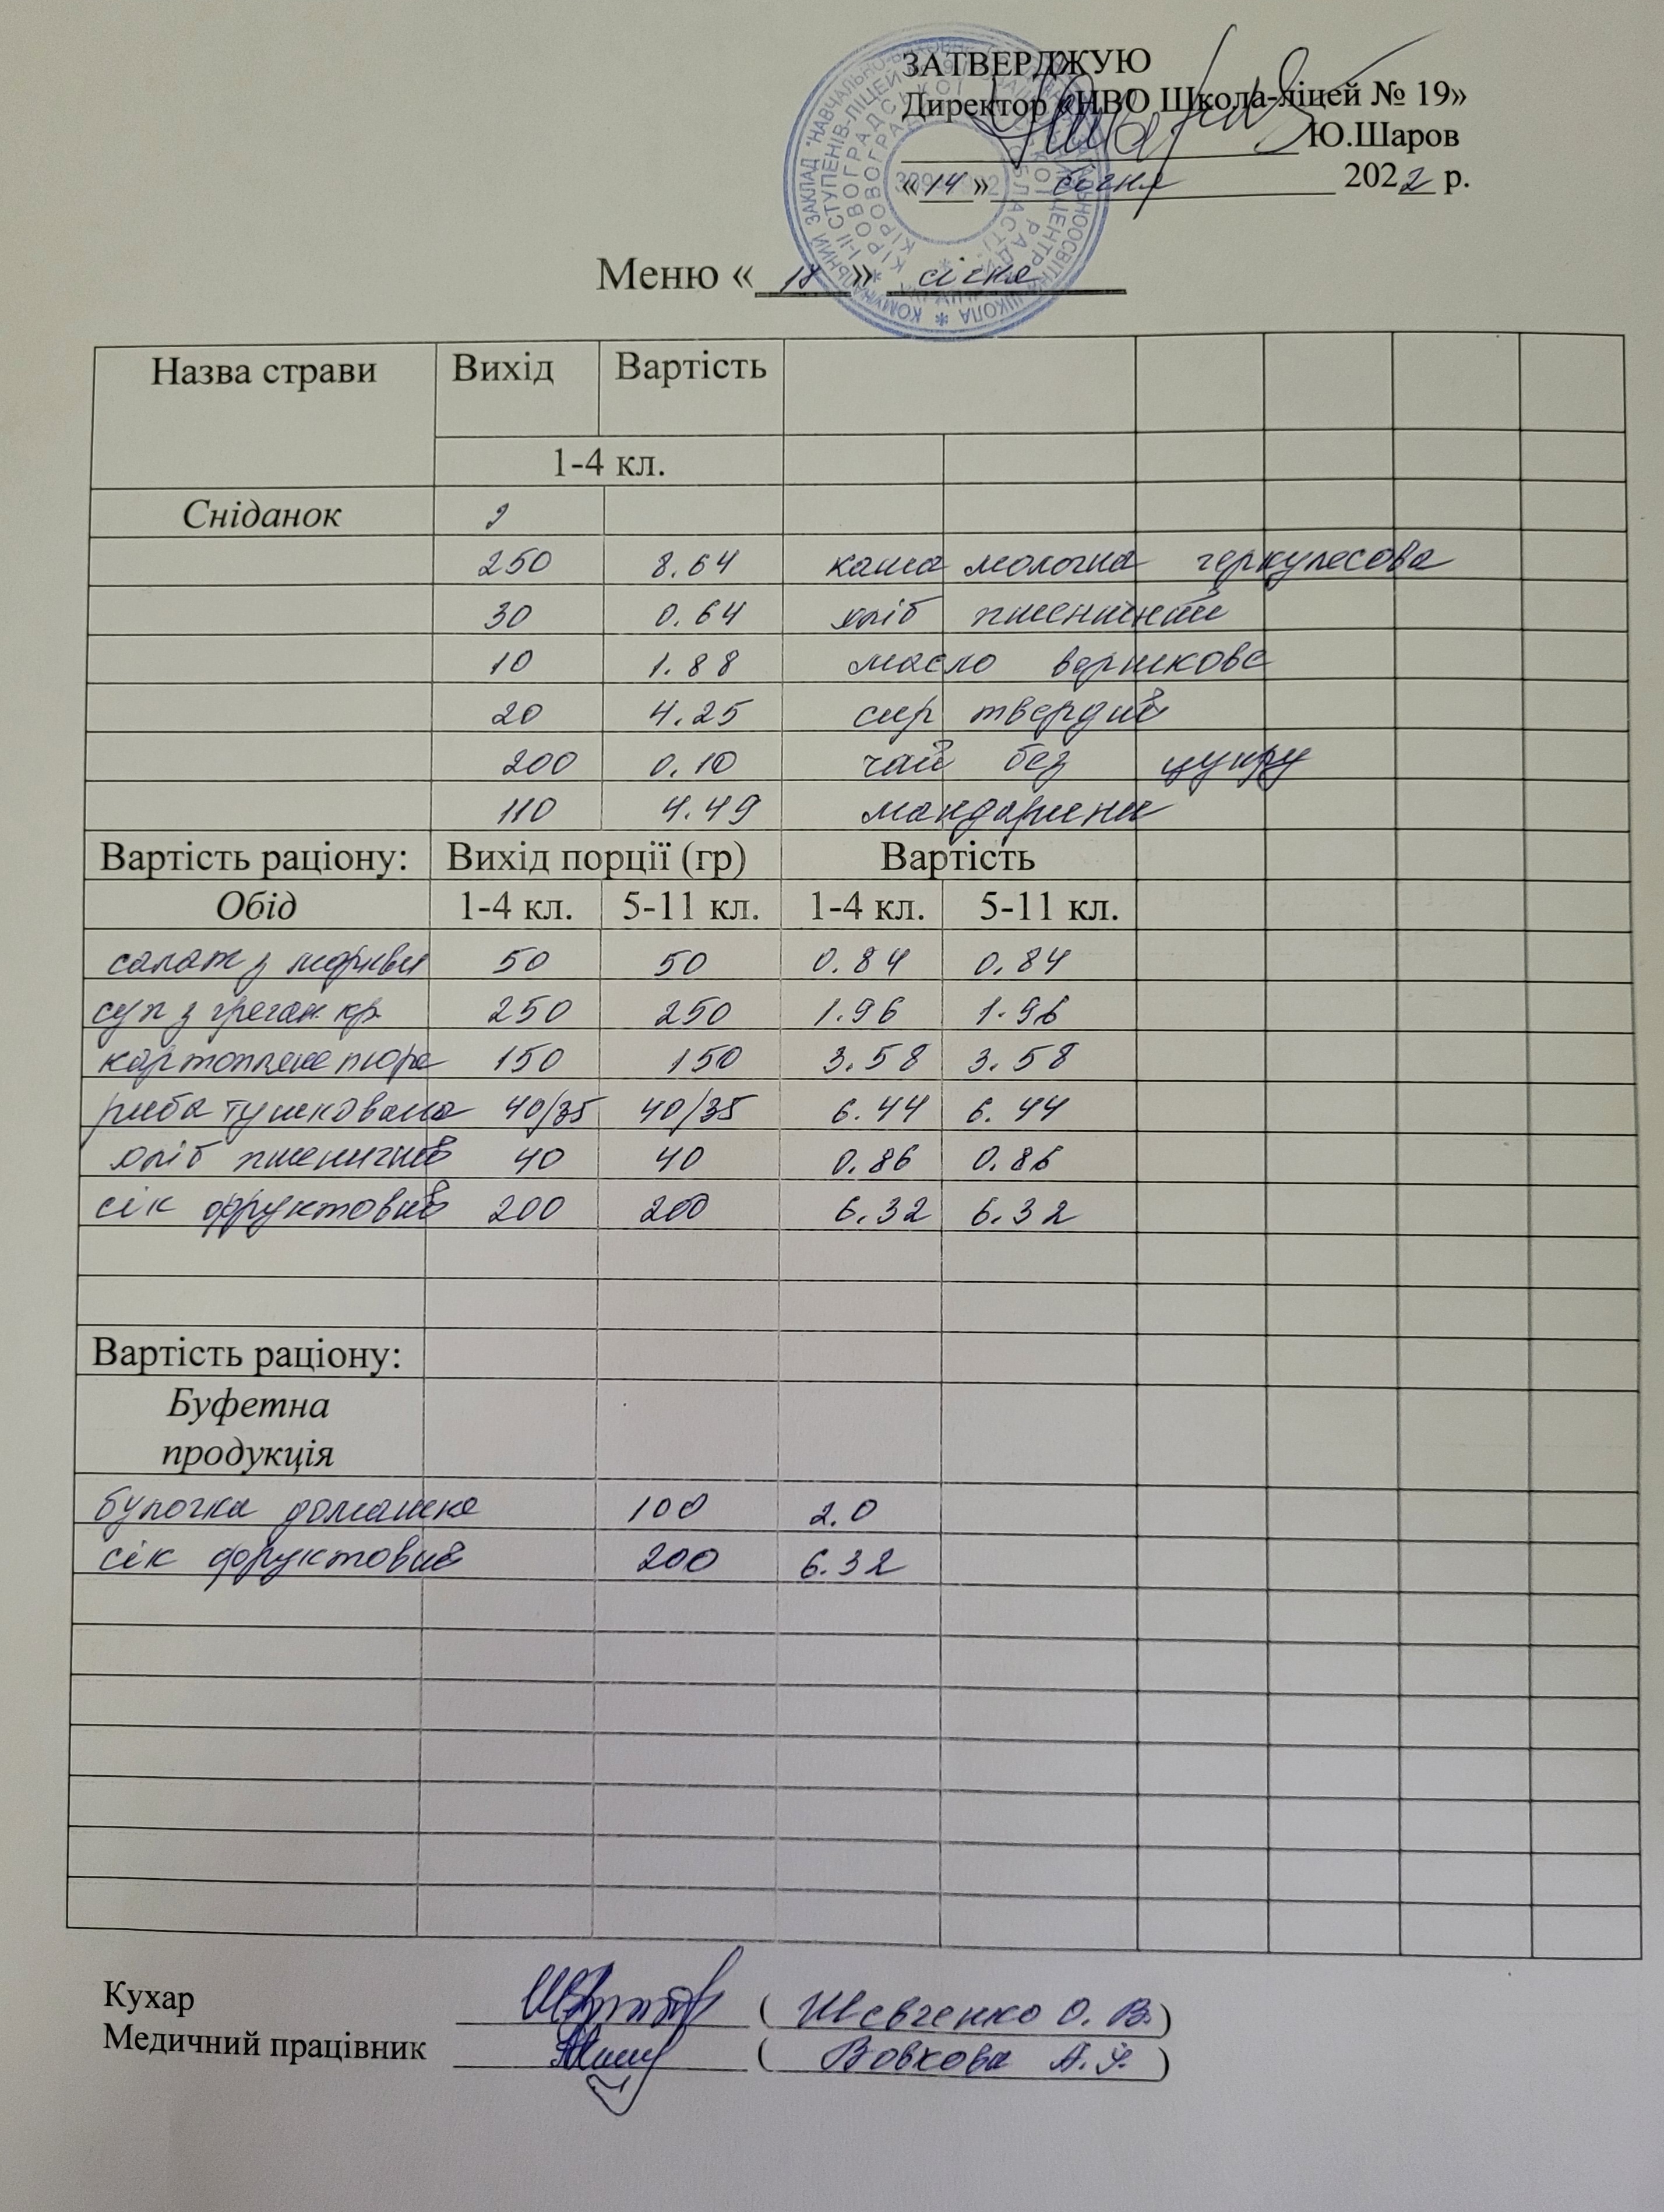 ЗАТВЕРДЖУЮ
Директор «НВО Школа-ліцей № 19»
Ю.Шаров
«14» січня 2022 р.
Меню «18» січня
Назва страви Вихід Вартість
1-4 кл.
Сніданок
250 8.64 каша молочна геркулесова
30 0.64 хліб пшеничний
10 1.88 масло вершкове
20 4.25 сир твердий
200 0.10 чай без цукру
110 4.49 мандарини
Вартість раціону: Вихід порції (гр) Вартість
Обід 1-4 кл. 5-11 кл. 1-4 кл. 5-11 кл.
салат з моркви 50 50 0.84 0.84
суп з гречан. кр. 250 250 1.96 1.96
картопляне пюре 150 150 3.58 3.58
риба тушкована 40/35 40/35 6.44 6.44
хліб пшеничний 40 40 0.86 0.86
сік фруктовий 200 200 6.32 6.32
Вартість раціону:
Буфетна
продукція
булочка домашня 100 2.0
сік фруктовий 200 6.32
Кухар (Шевченко О. В.)
Медичний працівник (Вовкова А.)